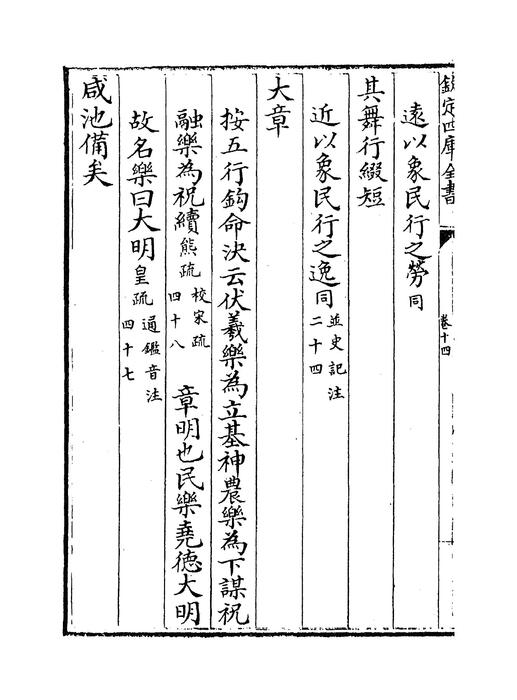 欽定四庫全書
卷十四
遠以象民行之勞同
其舞行綴短
近以象民行之逸同並史記注二十四
大章
按五行鈎命决云伏羲樂為立基神農樂為下謀祝
融樂為祝續熊疏校宋疏四十八 章明也民樂堯德大明
故名樂曰大明皇疏通鑑音注四十七
咸池備矣